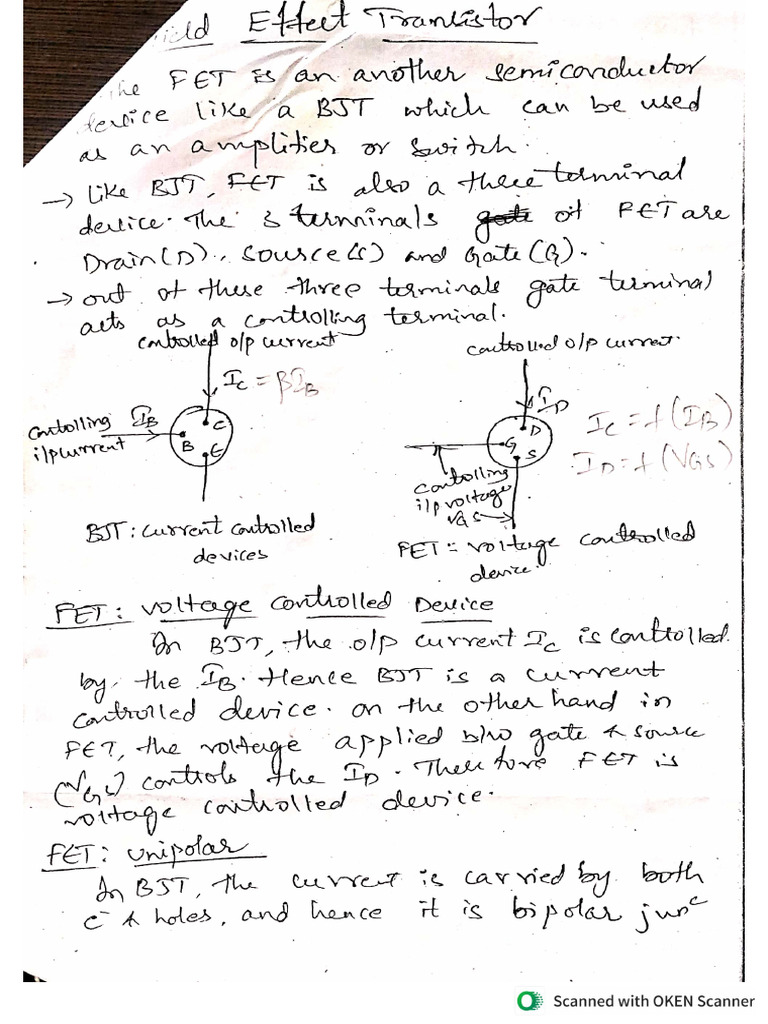 ield Effect Transistor
The FET is an another semiconductor
device like a BJT which can be used
as an amplifier or switch.
→ Like BJT, FET is also a three terminal
device. The 3 terminals gate of FET are
Drain(D), Source(S) and Gate(G).
→ out of these three terminals gate terminal
acts as a controlling terminal.
controlled o/p current
controlled o/p current.
I_C = βI_B
I_D
Controlling I_B
i/p current
C
B
E
D
G
S
I_C = f(I_B)
I_D = f(V_GS)
controlling
i/p voltage
V_GS
BJT: current controlled
devices
FET = voltage controlled
device.
FET: voltage controlled Device
In BJT, the o/p current I_C is controlled
by the I_B. Hence BJT is a current
controlled device. on the other hand in
FET, the voltage applied b/w gate & source
(V_GS) controls the I_D. Therefore FET is
voltage controlled device.
FET: unipolar
In BJT, the current is carried by both
e⁻ & holes, and hence it is bipolar junᶜ
Scanned with OKEN Scanner